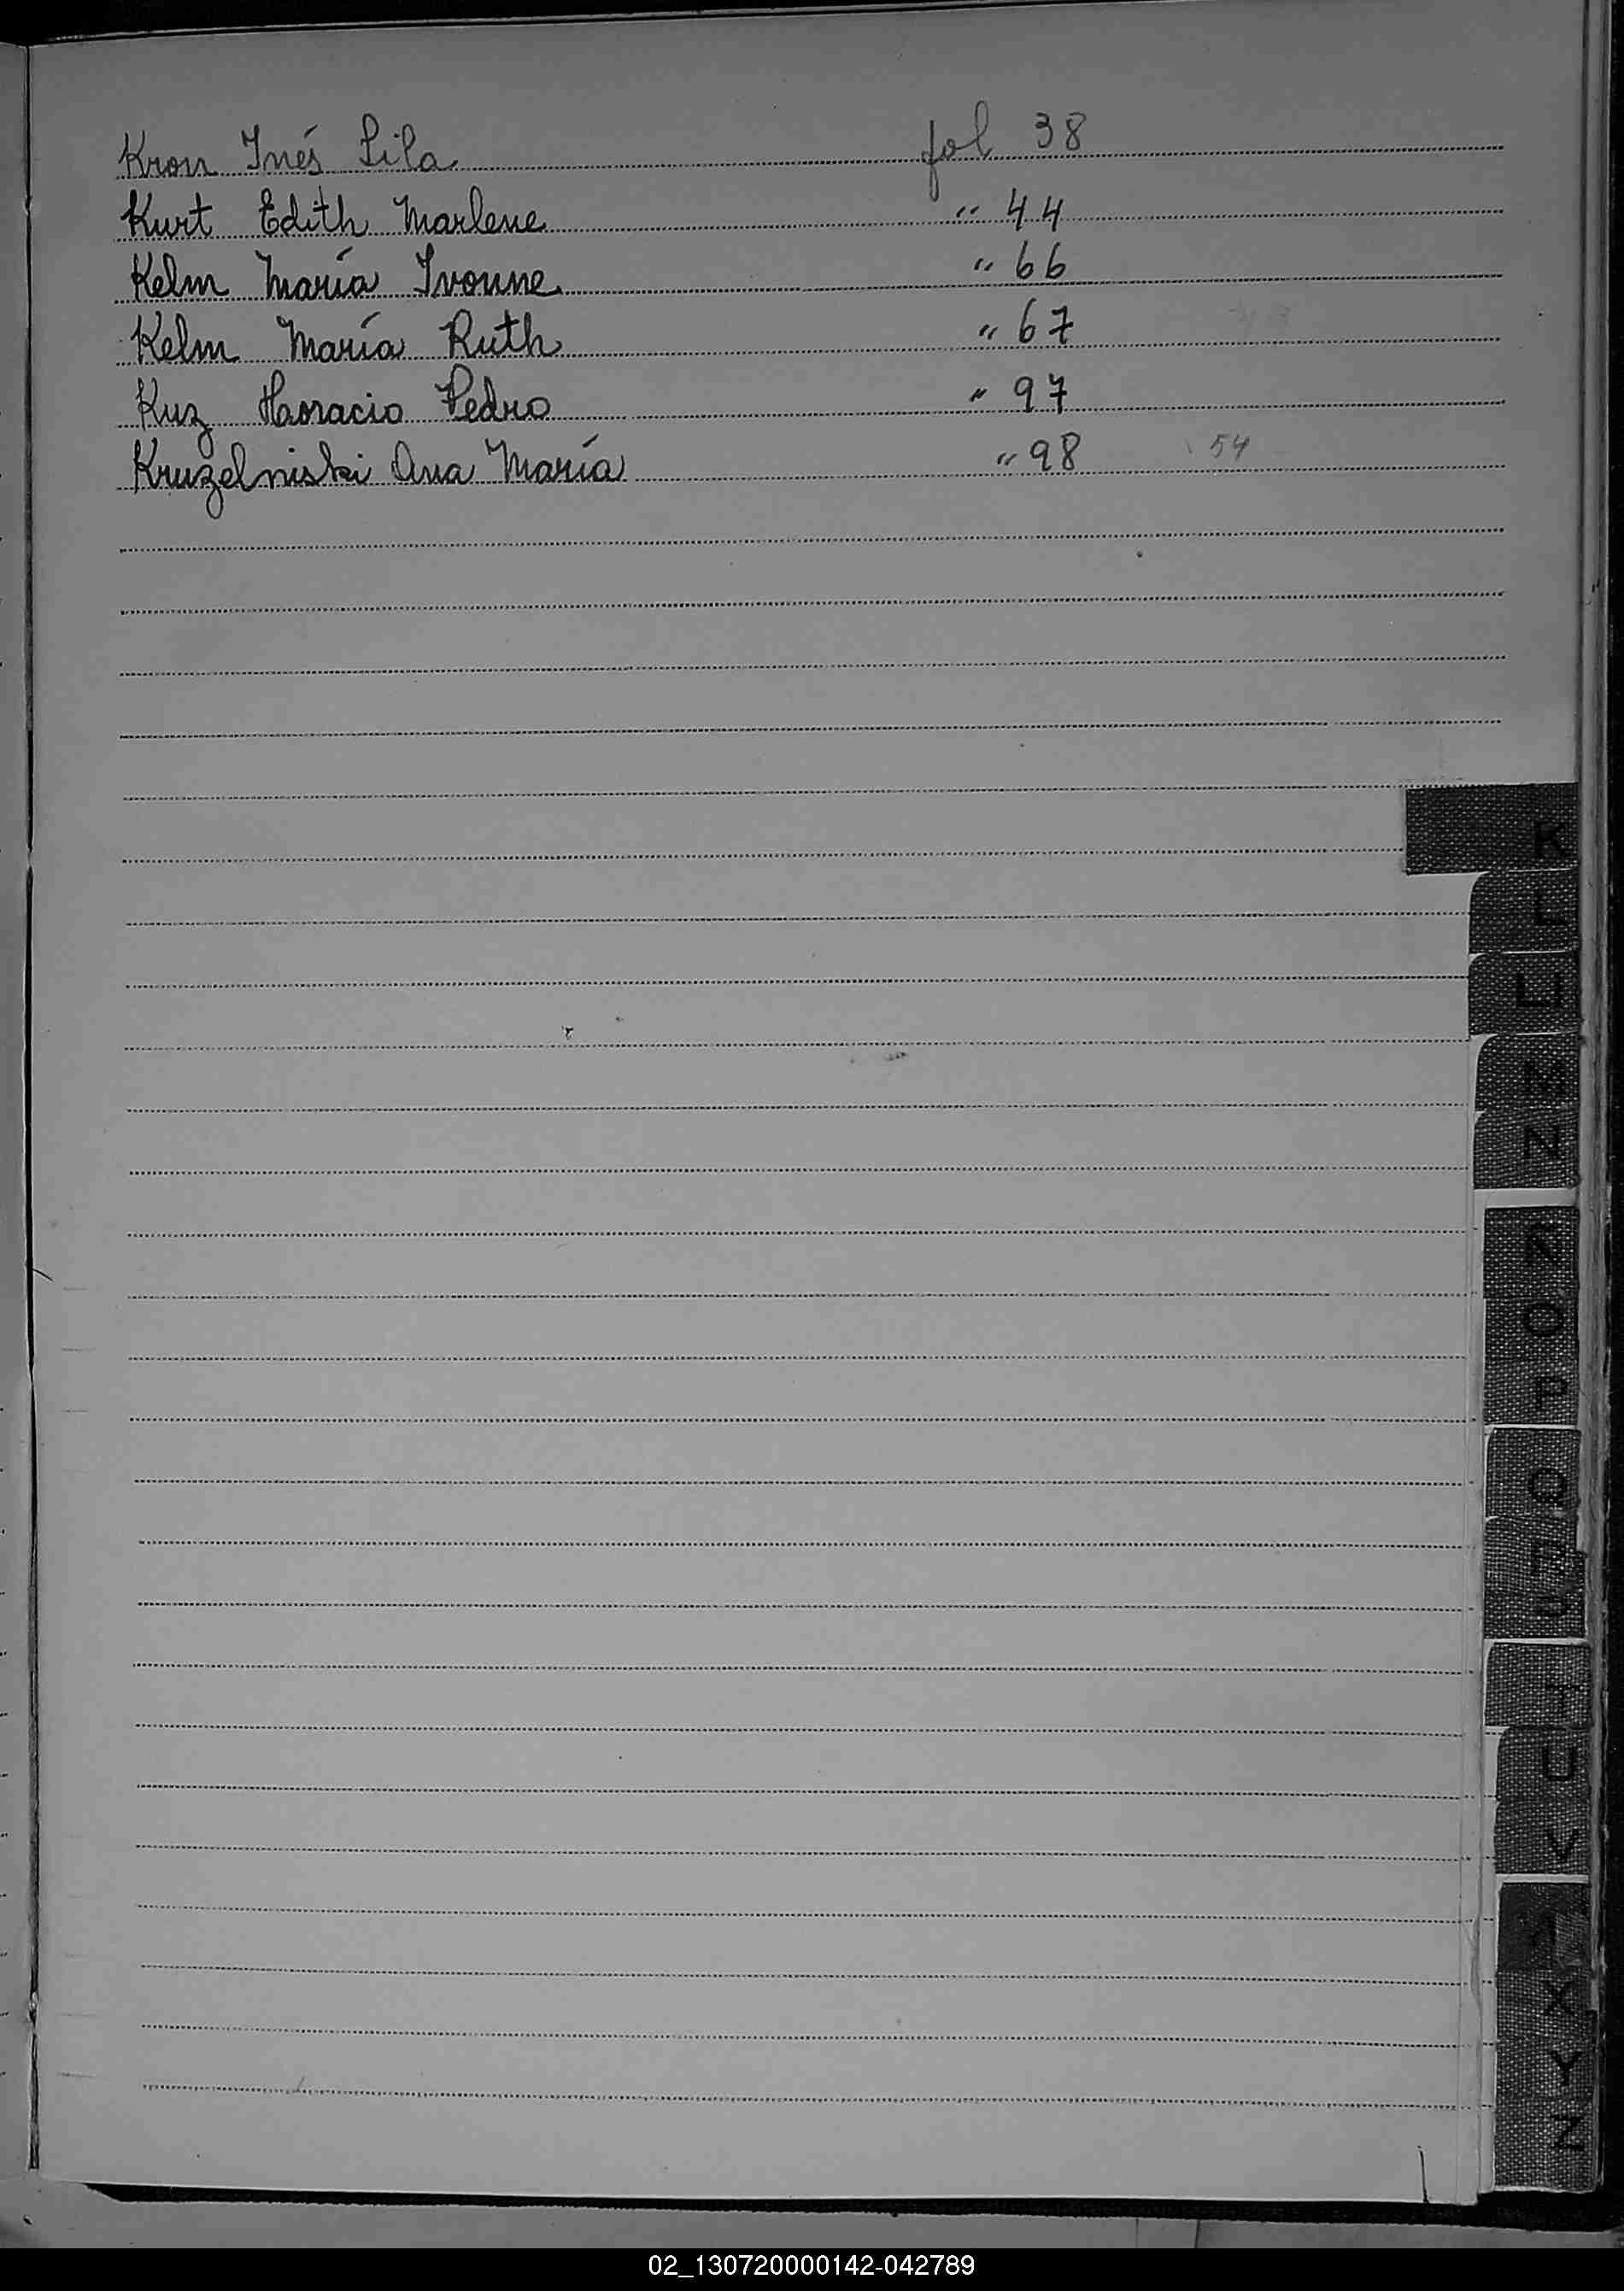 Kron Inés Lila fol 38
Kurt Edith Marlene " 44
Kelm María Ivonne " 66
Kelm María Ruth " 67
Kuz Horacio Pedro " 97
Kruzelniski Ana María " 98 54
K
L
LL
M
N
Ñ
O
P
Q
R
S
T
U
V
X
Y
Z
02_130720000142-042789